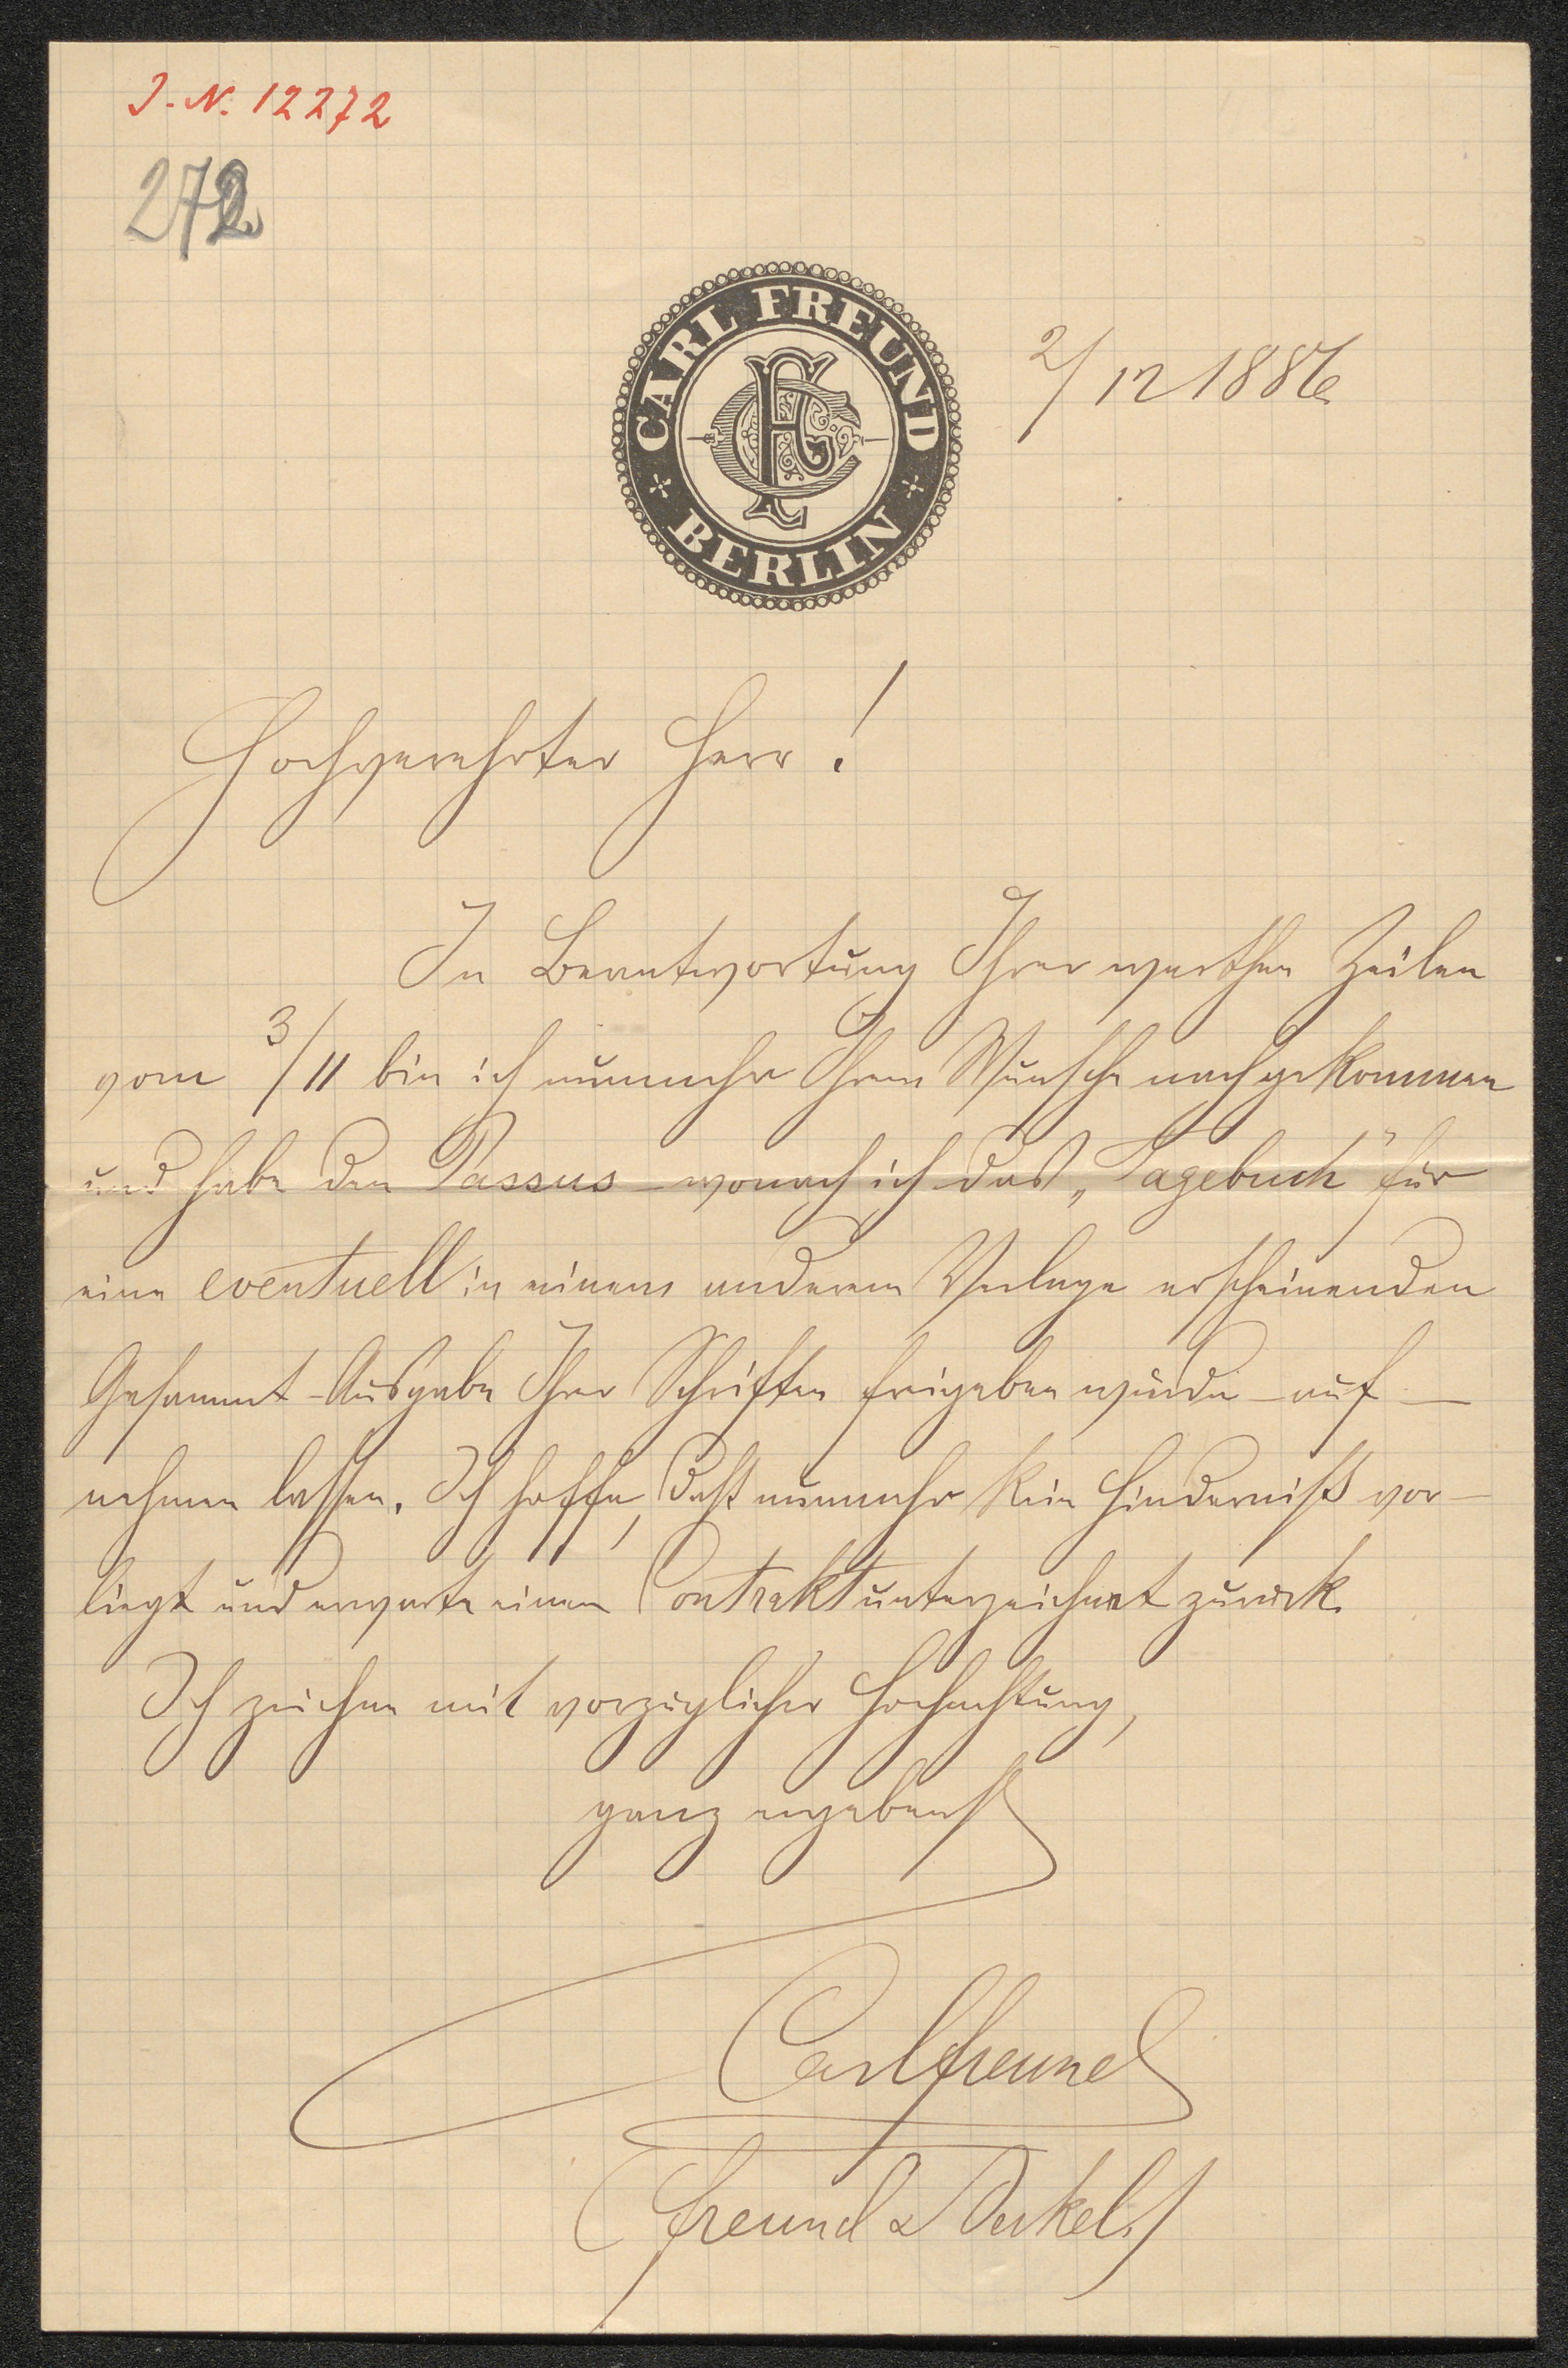 J.-N. 12272
272
CARL FREUND
BERLIN
2/12 1886
Hochverehrter Herr!
In Beantwortung Ihrer werthen Zeilen
vom 3/11 bin ich nunmehr Ihrem Wunsche nachgekommen
und habe den Passus – wonach ich das „Tagebuch" für
eine eventuell in einem anderem Verlage erscheinenden
Gesammt-Ausgabe Ihrer Schriften freigeben würde – auf-
nehmen lassen. Ich hoffe, daß nunmehr kein Hinderniß vor-
liegt und erwarte einen Contrakt unterzeichnet zurück.
Ich zeichne mit vorzüglicher Hochachtung,
ganz ergebenst
Carl Freund
(Freund &